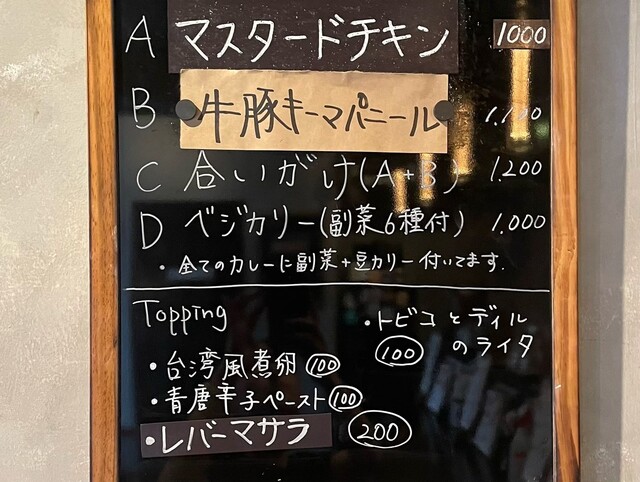 A マスタードチキン 1000
B 牛豚キーマパニール 1.100
C 合いがけ(A+B) 1.200
D ベジカリー(副菜6種付) 1.000
・全てのカレーに副菜+豆カリー付いてます.
Topping
・台湾風煮卵 100
・青唐辛子ペースト 100
・レバーマサラ 200
・トビコとディル
のライタ
100